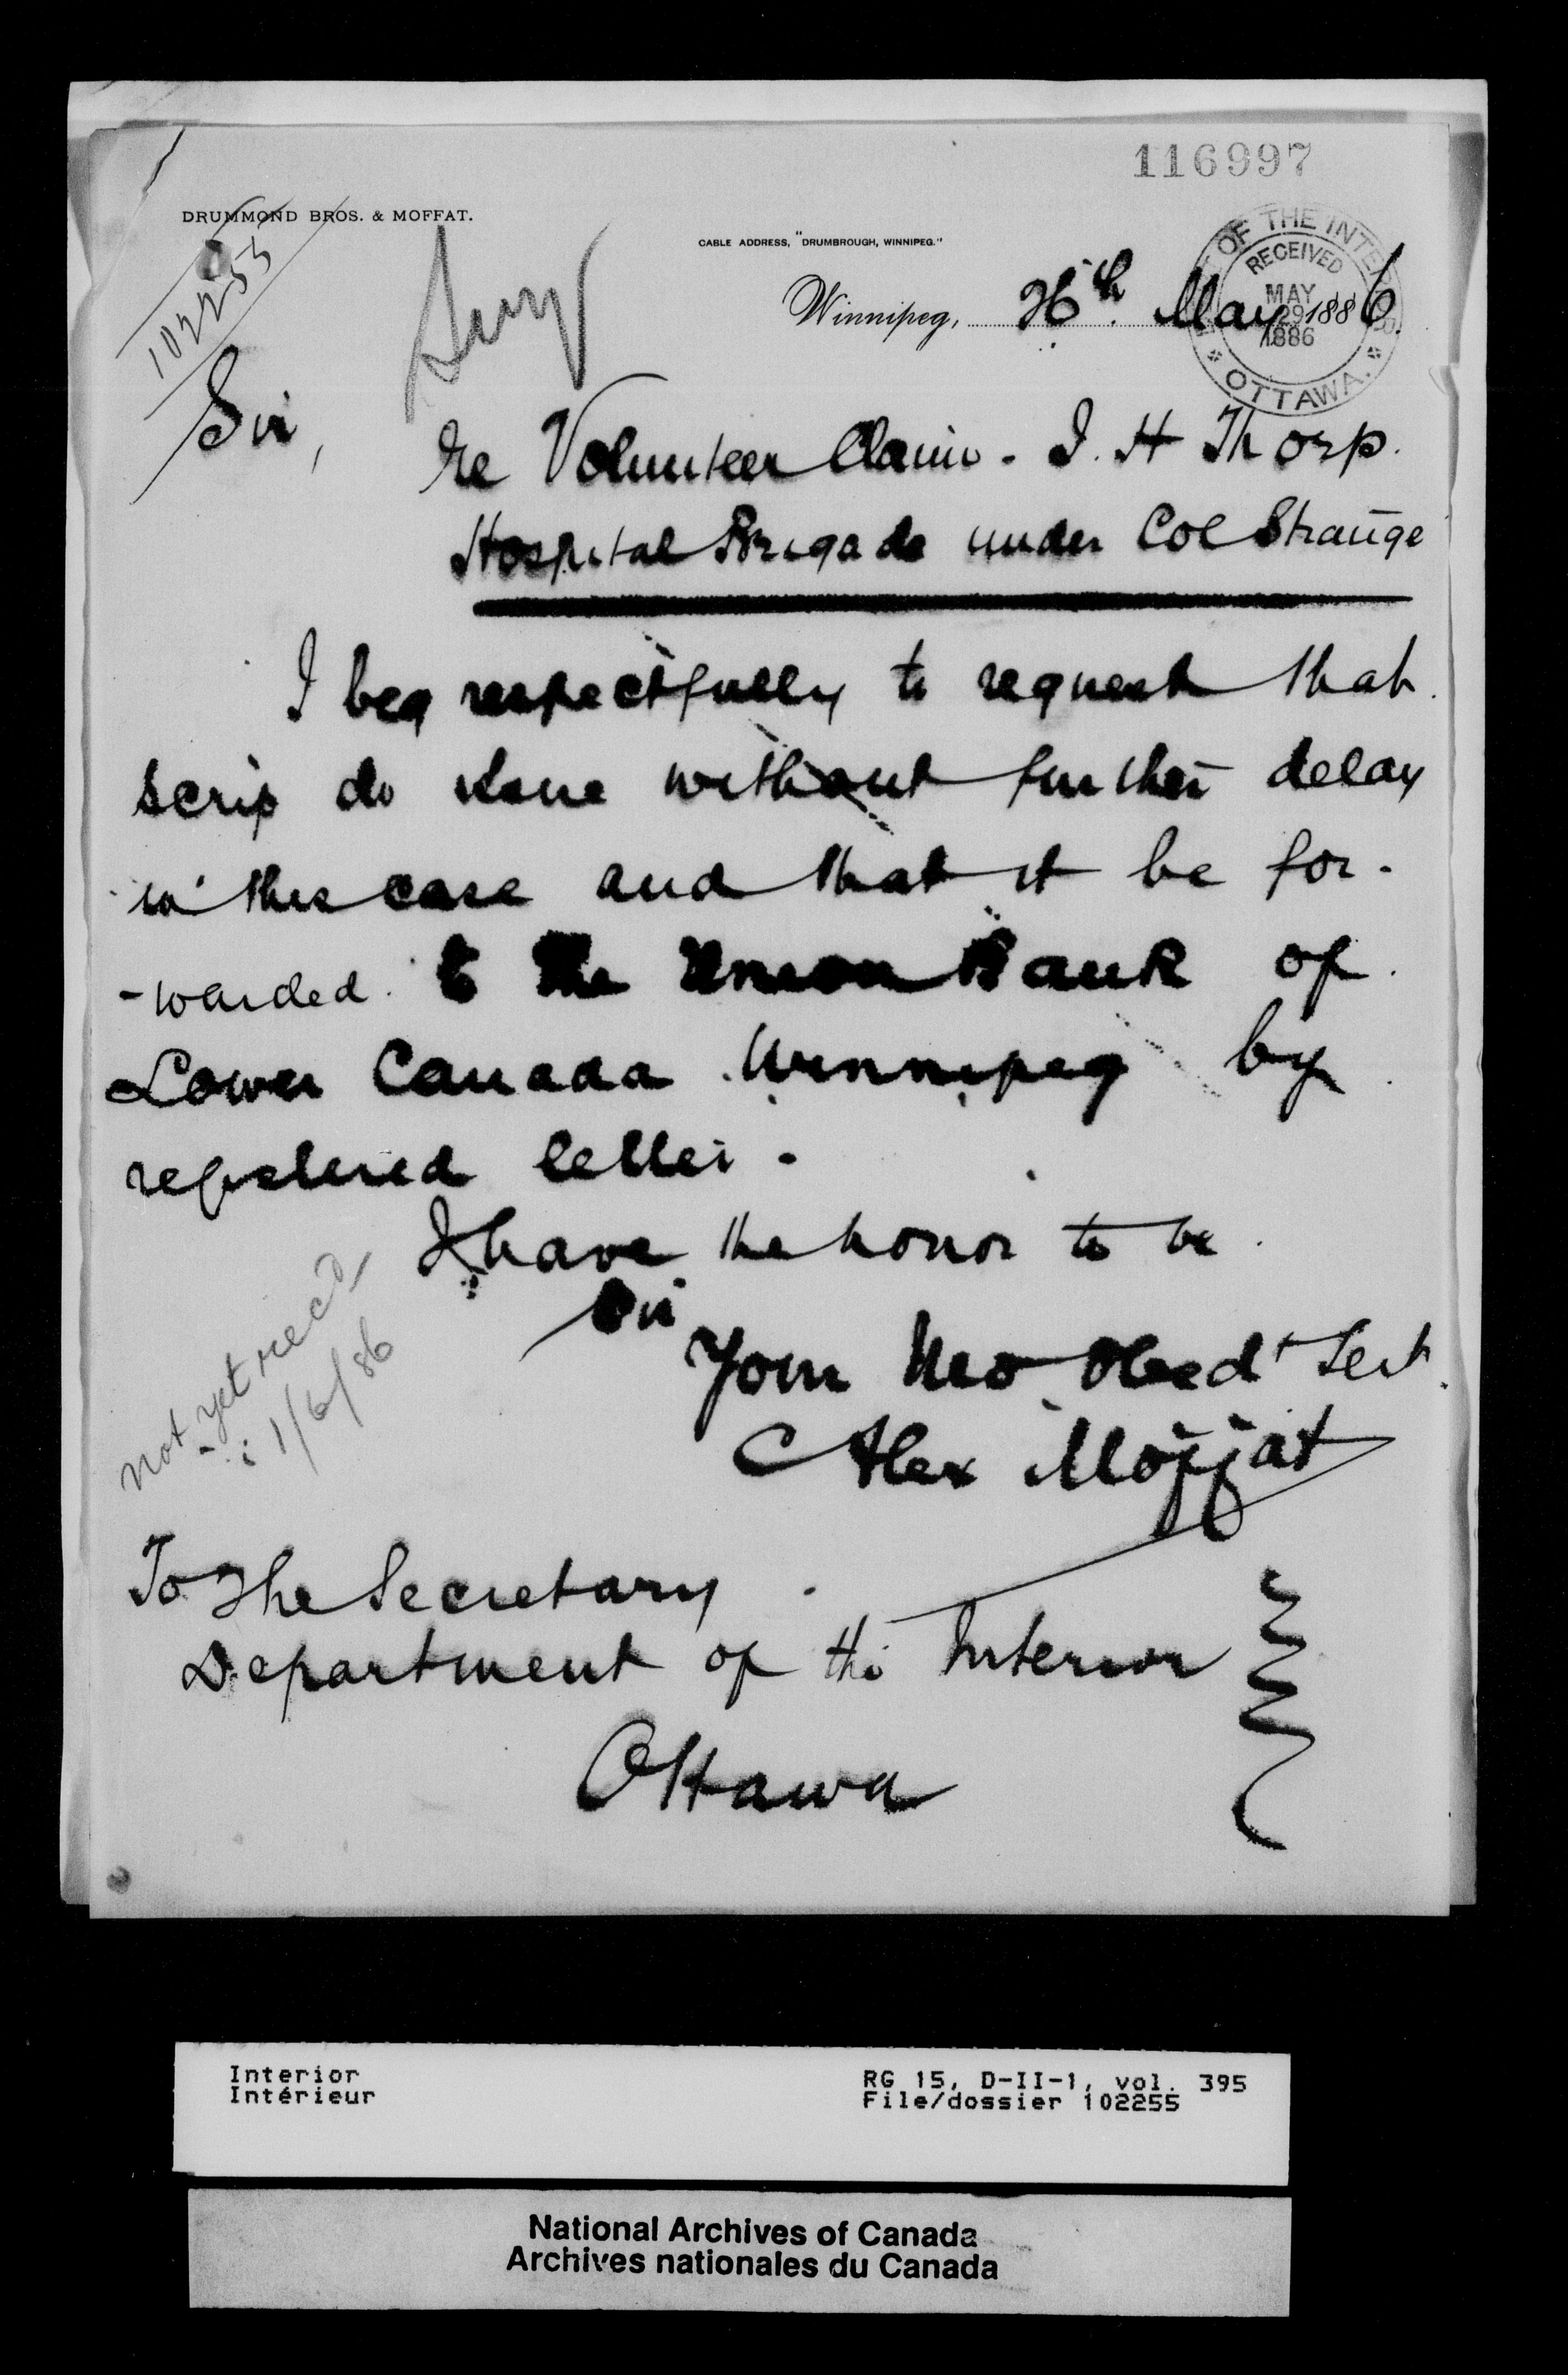 116997
DRUMMOND BROS. & MOFFAT.
CABLE ADDRESS, "DRUMBROUGH, WINNIPEG."
102255
DEPT OF THE INTERIOR
RECEIVED
MAY
29
1886
OTTAWA.
Winnipeg, 26th. May 1886.
Sir,
Re Volunteer Claim - I. H Thorp.
Hospital Brigade under Col Strange
I beg respectfully to request that
scrip do issue without further delay
in this case and that it be for-
-warded to the Union Bank of
Lower Canada Winnipeg by
registered letter -
I have the honor to be
Sir
Your Mo Obedt Servt
Alex Moffat
not yet recd
1/6/86
To The Secretary
Department of the Interior
Ottawa
Interior
Intérieur
RG 15, D-II-1, vol. 395
File/dossier 102255
National Archives of Canada
Archives nationales du Canada